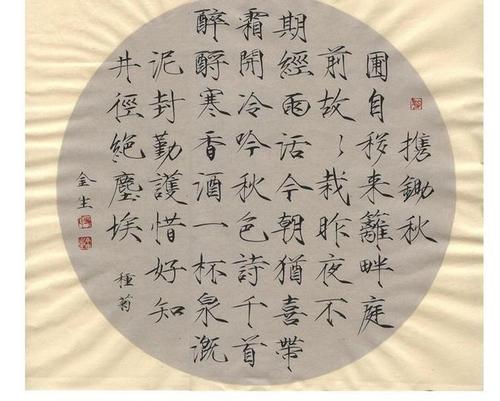 携鋤秋
圃自移来籬畔庭
前故〻栽昨夜不
期經雨活今朝猶喜帶
霜開冷吟秋色詩千首
醉酹寒香酒一杯泉溉
泥封勤護惜好知
井徑絶塵埃
種菊
金生